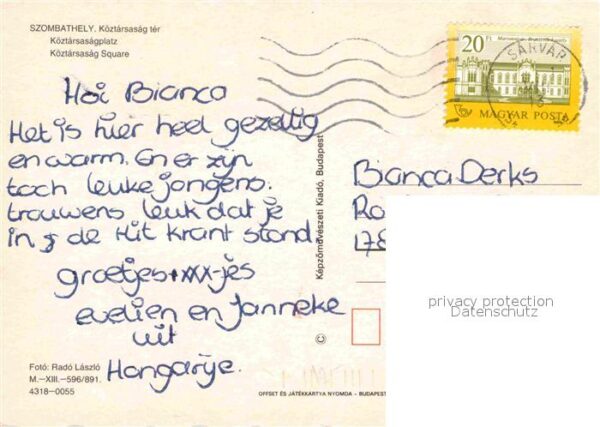 SZOMBATHELY. Köztársaság tér
Köztársaságplatz
Köztársaság Square
Hoi Bianca
Het is hier heel gezellig
en warm. En er zijn
toch leuke jongens.
trouwens leuk dat je
in de Hit krant stond.
groetjes + xxx-jes
evelien en Janneke
uit
Hongarije.
Fotó: Radó László
M.–XIII.–596/891.
4318–0055
Képzőművészeti Kiadó, Budapest
©
OFFSET ÉS JÁTÉKKÁRTYA NYOMDA – BUDAPEST
20 Ft
SÁRVÁR
MAGYAR POSTA
Bianca Derks
Ro
178
privacy protection
Datenschutz